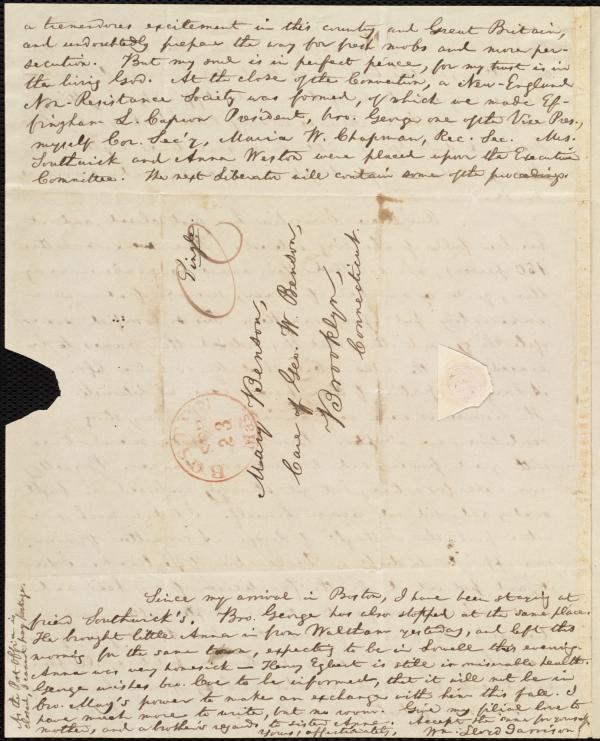 a tremendous excitement in this country and Great Britain,
and undoubtedly prepare the way for fresh mobs and more per-
secution. But my soul is in perfect peace, for my trust is in
the living God. At the close of the Convention, a New-England
Non-Resistance Society was formed, of which we made Ef-
fingham L. Capron President, bro. George one of the Vice Pres.,
myself Cor. Sec'y, Maria W. Chapman, Rec. Sec. Mrs.
Southwick and Anna Weston were placed upon the Executive
Committee. The next Liberator will contain some of the proceedings.
Single.
Mary Benson,
Care of Geo. W. Benson,
Brooklyn,
Connecticut.
BOSTON
SEP
23
Since my arrival in Boston, I have been staying at
friend Southwick's. Bro. George has also stopped at the same place.
He brought little Anna in from Waltham yesterday, and left this
morning for the same town, expecting to be in Lowell this evening.
Anna was very homesick — Henry Egbert is still in miserable health.
George wishes bro. to be informed, that it will not be in
bro. May's power to make an exchange with him this fall. I
have much more to write, but no room. Give my filial love to
mother, and a brother's regards to sister Anne. Accept the same for yourself.
Yours, affectionately, Wm. Lloyd Garrison.
In the Post Office is